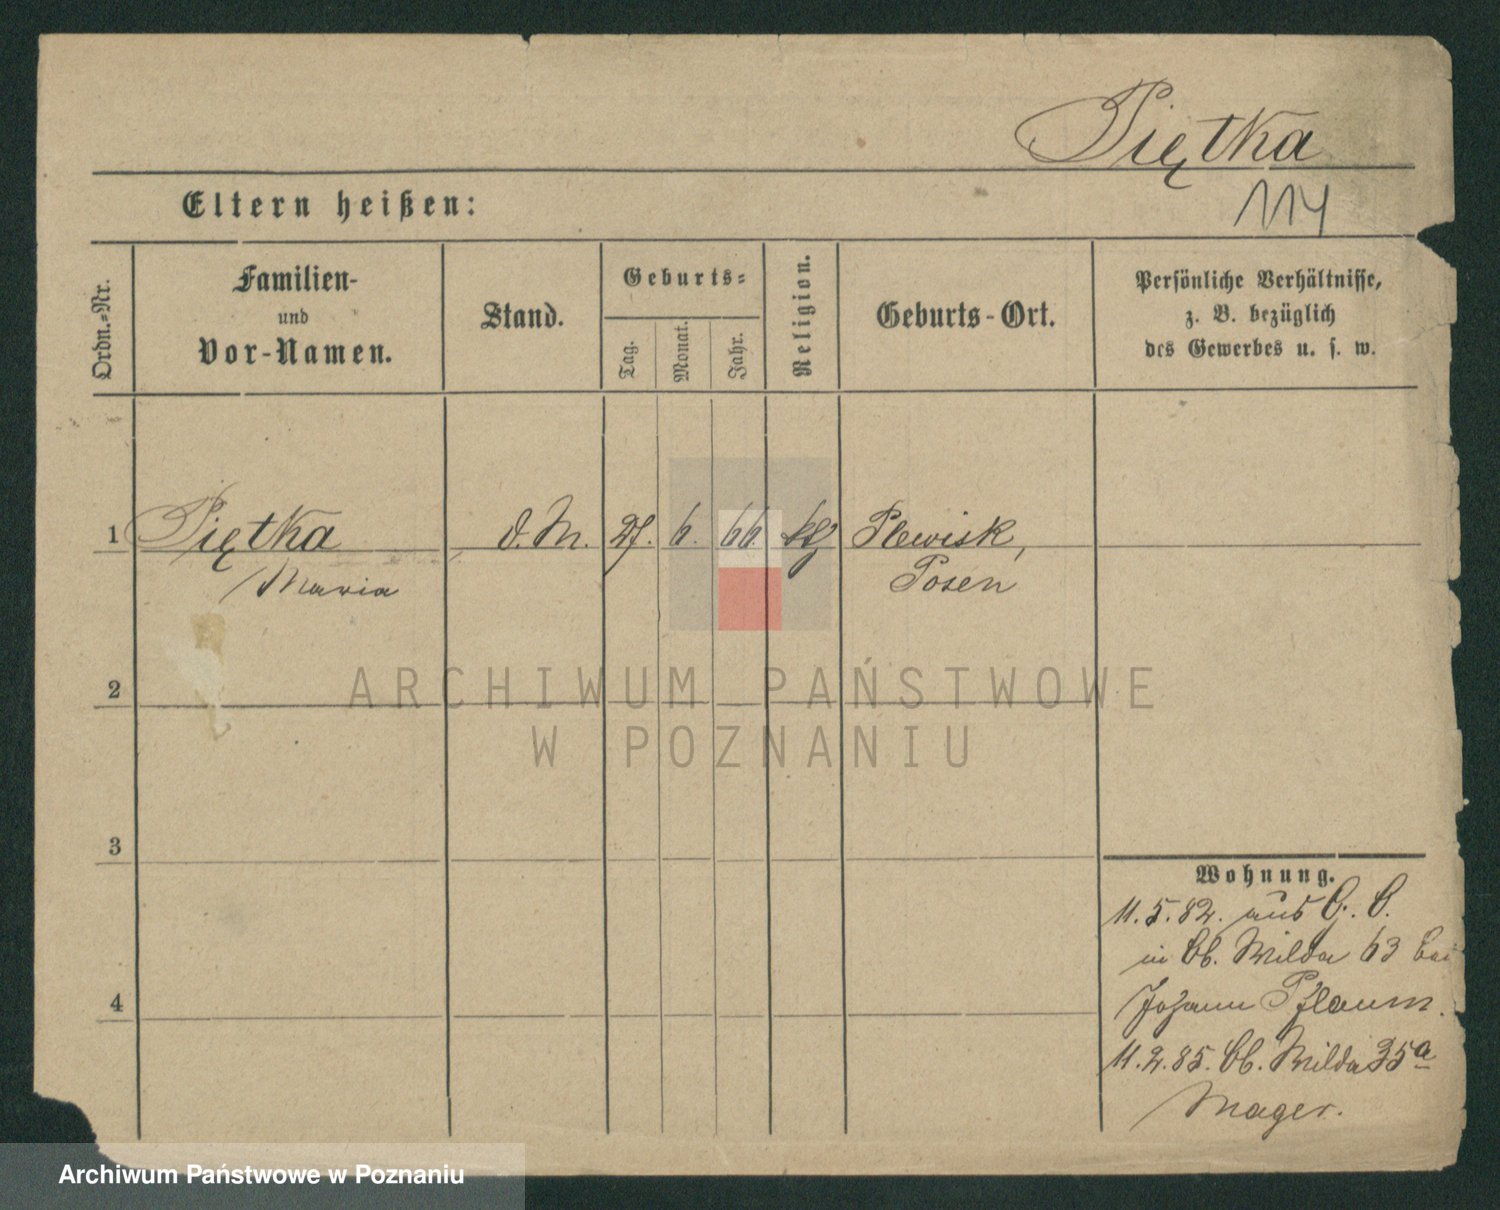 Piętka
114
Eltern heißen:
Ordn.-Nr.
Familien-
und
Vor-Namen.
Stand.
Geburts-
Tag.
Monat.
Jahr.
Religion.
Geburts-Ort.
Persönliche Verhältnisse,
z. B. bezüglich
des Gewerbes u. s. w.
1 Piętka d. M. 27. 6. 66. Plewisk,
Maria Posen
2
3
4
ARCHIWUM PAŃSTWOWE
W POZNANIU
Wohnung.
11.5.82. aus
in Ob. Wilda 63 bei
Johann Pflaum.
11.2.85. Ob. Wilda 35a
Mager.
Archiwum Państwowe w Poznaniu